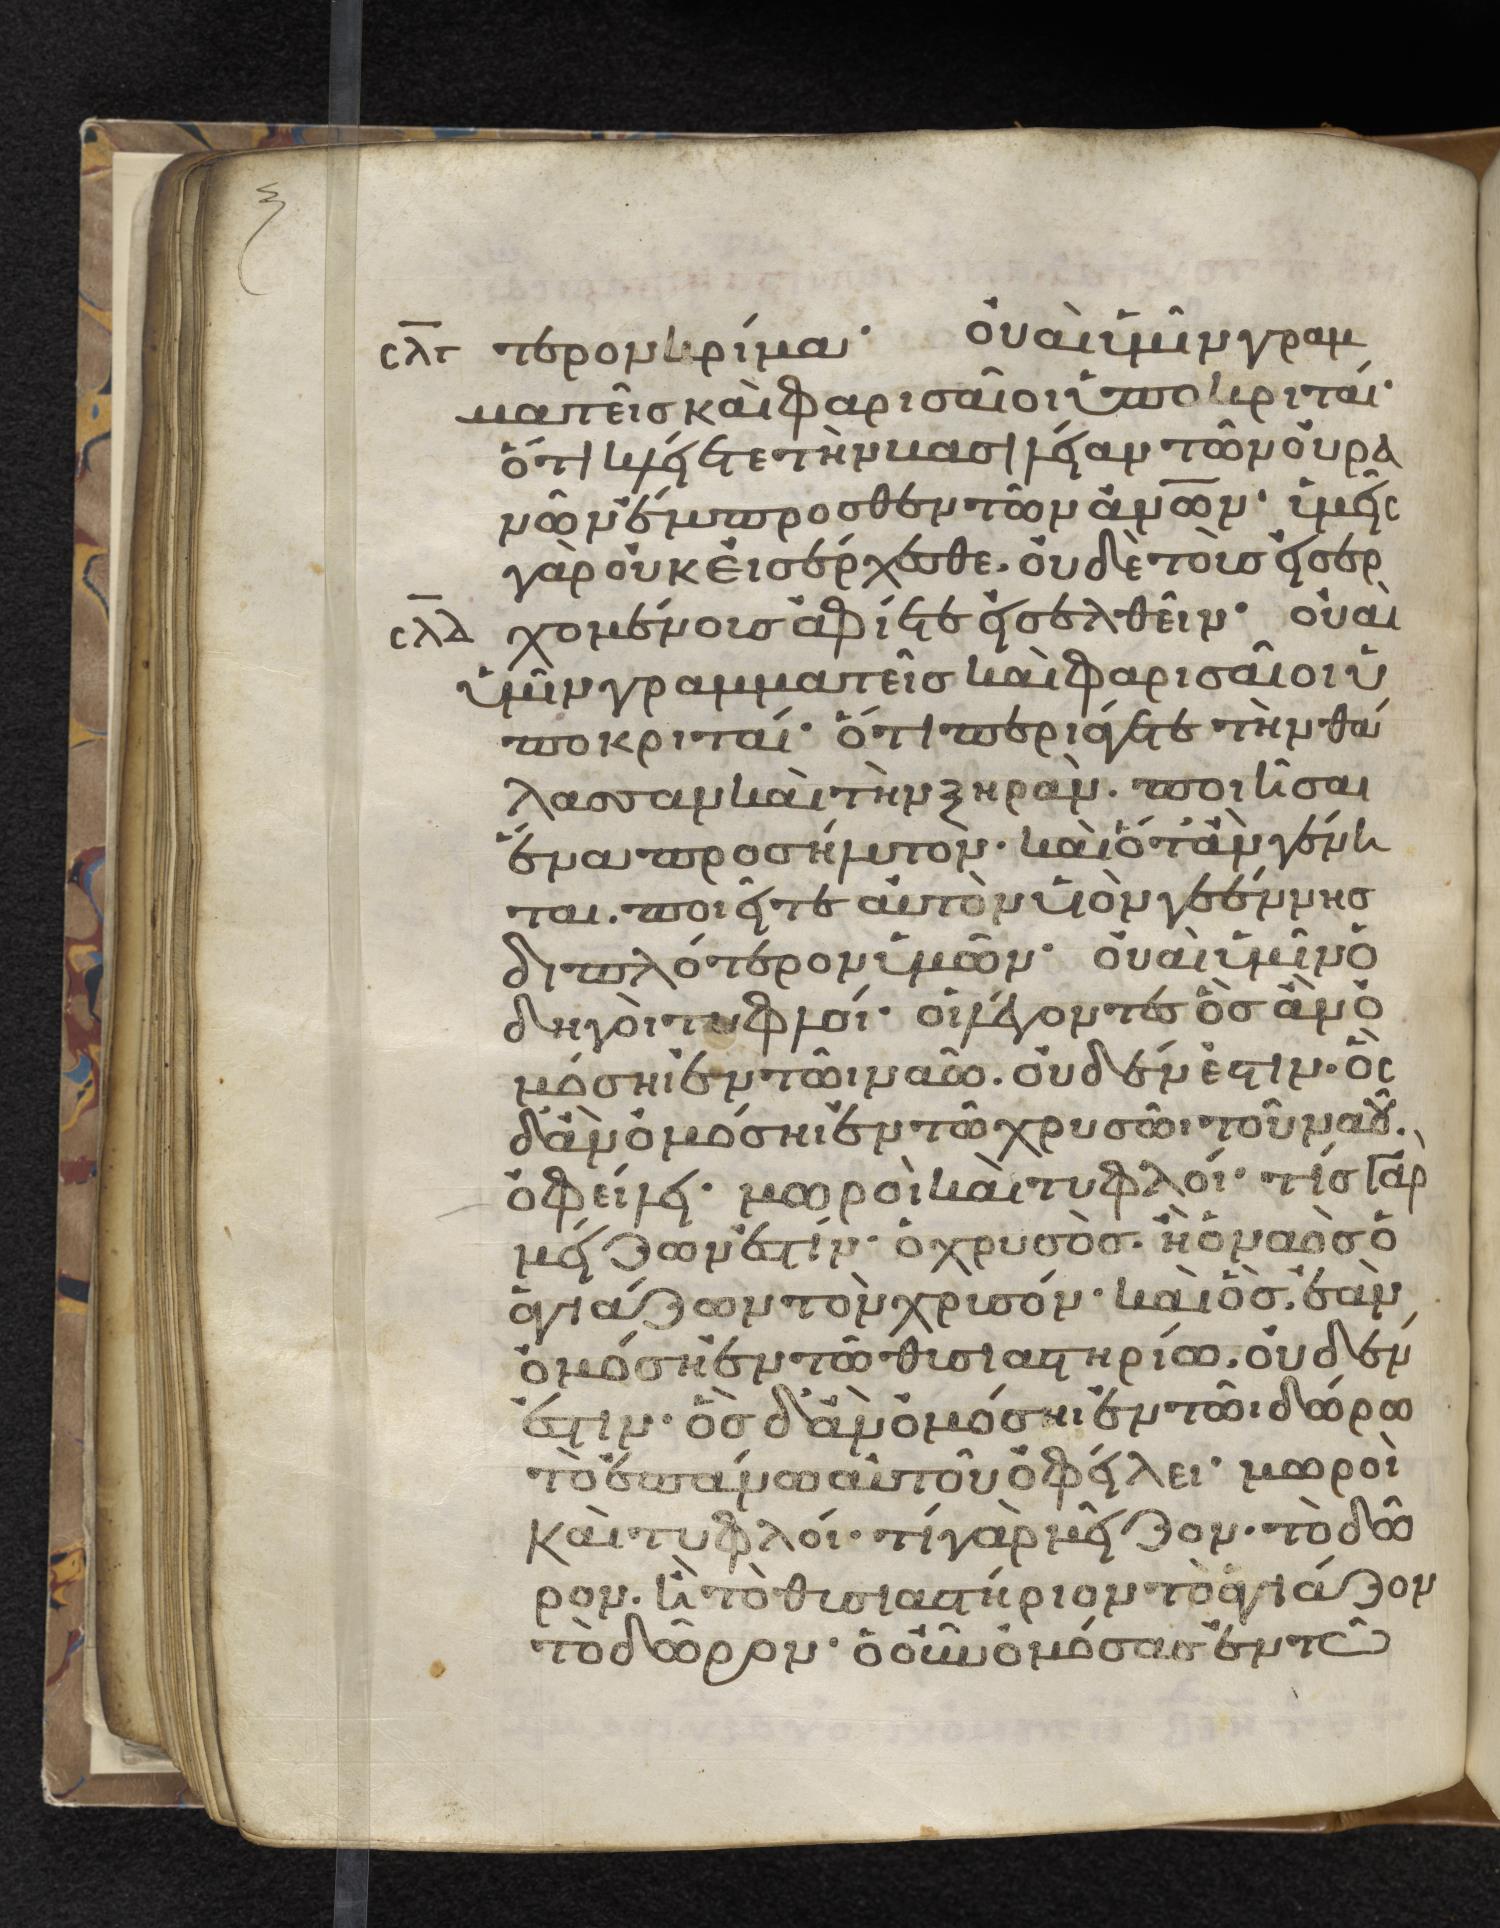 σλγ τερον κρίμα· ὀυαὶ ὑμῖν γραμ
ματεῖσ καὶ φαρισαῖοι ὑποκριταί·
ὅτι κλείετε τὴν βασιλείαν τῶν ὀυρα
νῶν ἔμπροσθεν τῶν ἀν̅ω̅ν· ὑμεῖς
γὰρ ὀυκ ἐισέρχεσθε. ὀυδὲ τοὺσ ἐισερ
σλδ χομένουσ ἀφίετε ἐισελθεῖν· ὀυαὶ
ὑμῖν γραμματεῖσ καὶ φαρισαῖοι ὑ
ποκριταί· ὅτι περιάγετε τὴν θά
λασσαν καὶ τὴν ξηρὰν. ποιῆσαι
ἕνα προσήλυτον· καὶ ὅταν γένη
ται. ποιεῖτε ἀυτὸν ὑιὸν γεέννησ
διπλότερον ὑμῶν· ὀυαὶ ὑμῖν ὁ
δηγὸι τυφλοί· οἱ λέγοντεσ ὃσ ἂν ὀ
μόσηι ἐν τῶι ναῶ. ὀυδέν ἐστιν· ὃς
δ' ἂν ὀμόσηι ἐν τῶ χρυσῶι τοῦ ναοῦ.
ὀφείλει· μωροὶ καὶ τυφλοί· τίσ γὰρ
μείζων ἐστίν· ὁ χρυσὸσ. ἢ ὁ ναὸσ ὁ
ἁγιάζων τὸν χρυσόν· καὶ ὃσ. ἐὰν
ὀμόση ἐν τῶ θυσιαστηρίω. ὀυδέν
ἐστιν· ὃσ δ' ἂν ὀμόσηι ἐν τῶι δώρω
τὸ ἐπάνω ἀυτοῦ ὀφείλει· μωροὶ
καὶ τυφλοί· τί γὰρ μεῖζον. τὸ δῶ
ρον. ἢ τὸ θυσιαστήριον τὸ ἁγιάζον
τὸ δῶρον· ὁ οὖν ὀμόσασ ἐν τῶ